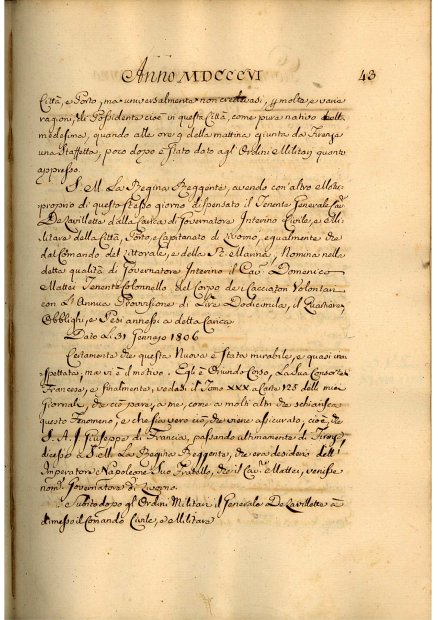 Anno MDCCCVI 43
Città, e Porto, ma universalmente non credevasi, p molte, e varie
ragioni, di Possidenta cioè in questa Città, come pura nativo della
medesima, quando alle ore 9 della mattina giunta da Firenze
una Staffetta, poco dopo è stato dato agl Ordini Militari quanto
appresso.
S. M. La Regina Reggente, avendo con altro Motu
proprio di questo stesso giorno dispensato il Tenente Generale
De Lavillette dalla Carica di Governatore Interino Civile, e Mi-
litare della Città, Porto, e Capitanato di Livorno, egualmente che
dal Comando del Littorale, e della R. Marina, Nomina nella
detta qualità di Governatore Interino il Cav. Domenico
Mattei Tenente Colonnello, del Corpo de Cacciatori Volontari
con L'Annua Provvisione di Lire Dodicimila, il Quartiere,
Obblighi, e Pesi annessi a detta Carica
Dato Li 31 Gennajo 1806
Certamente che questa Nuova è Stata mirabile, e quasi ina-
spettata, ma vi è il motivo. Egli è Oriundo Corso, La Sua Consorte
Francese, e finalmente, vedasi il Tomo XXX a Carte 125 dell mio
Giornale, che ciò pare, a me, come a molti altri che schiarisca
questo Fenomeno, e che sia vero ciò, che viene assicurato, cioè, che
S. A. I. Giuseppe di Francia, passando ultimamente di Firenze,
dicesse a S. M. La Regina Reggente, che era desiderio dell
Imperatore Napoleone Suo Fratello, che il Cav. Mattei, venisse
nom. Governatore di Livorno.
e Subito dopo gli Ordini Militari il Generale De Lavillette à
dimesso il Comando Civile, e Militare